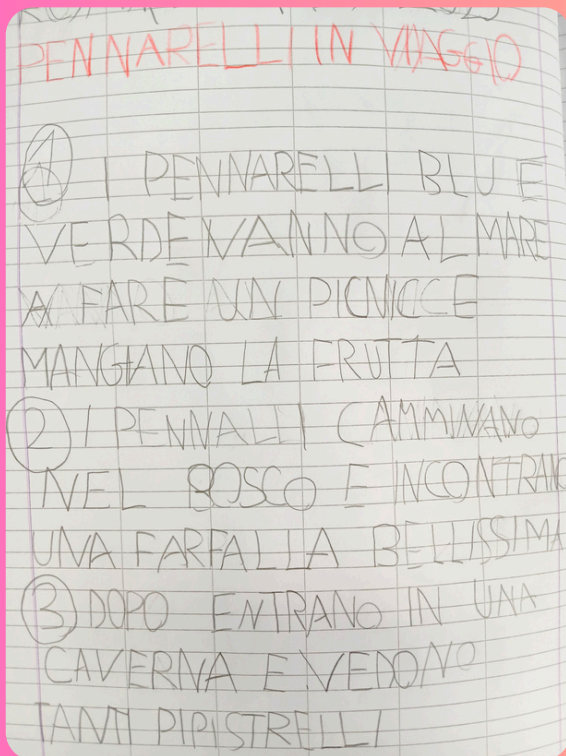 PENNARELLI IN VIAGGIO
1 I PENNARELLI BLU E
VERDE VANNO AL MARE
A FARE UN PICNICCE
MANGIANO LA FRUTTA
2 I PENNALLI CAMMINANO
NEL BOSCO E INCONTRANO
UNA FARFALLA BELLISSIMA
3 DOPO ENTRANO IN UNA
CAVERNA E VEDONO
TANTI PIPISTRELLI